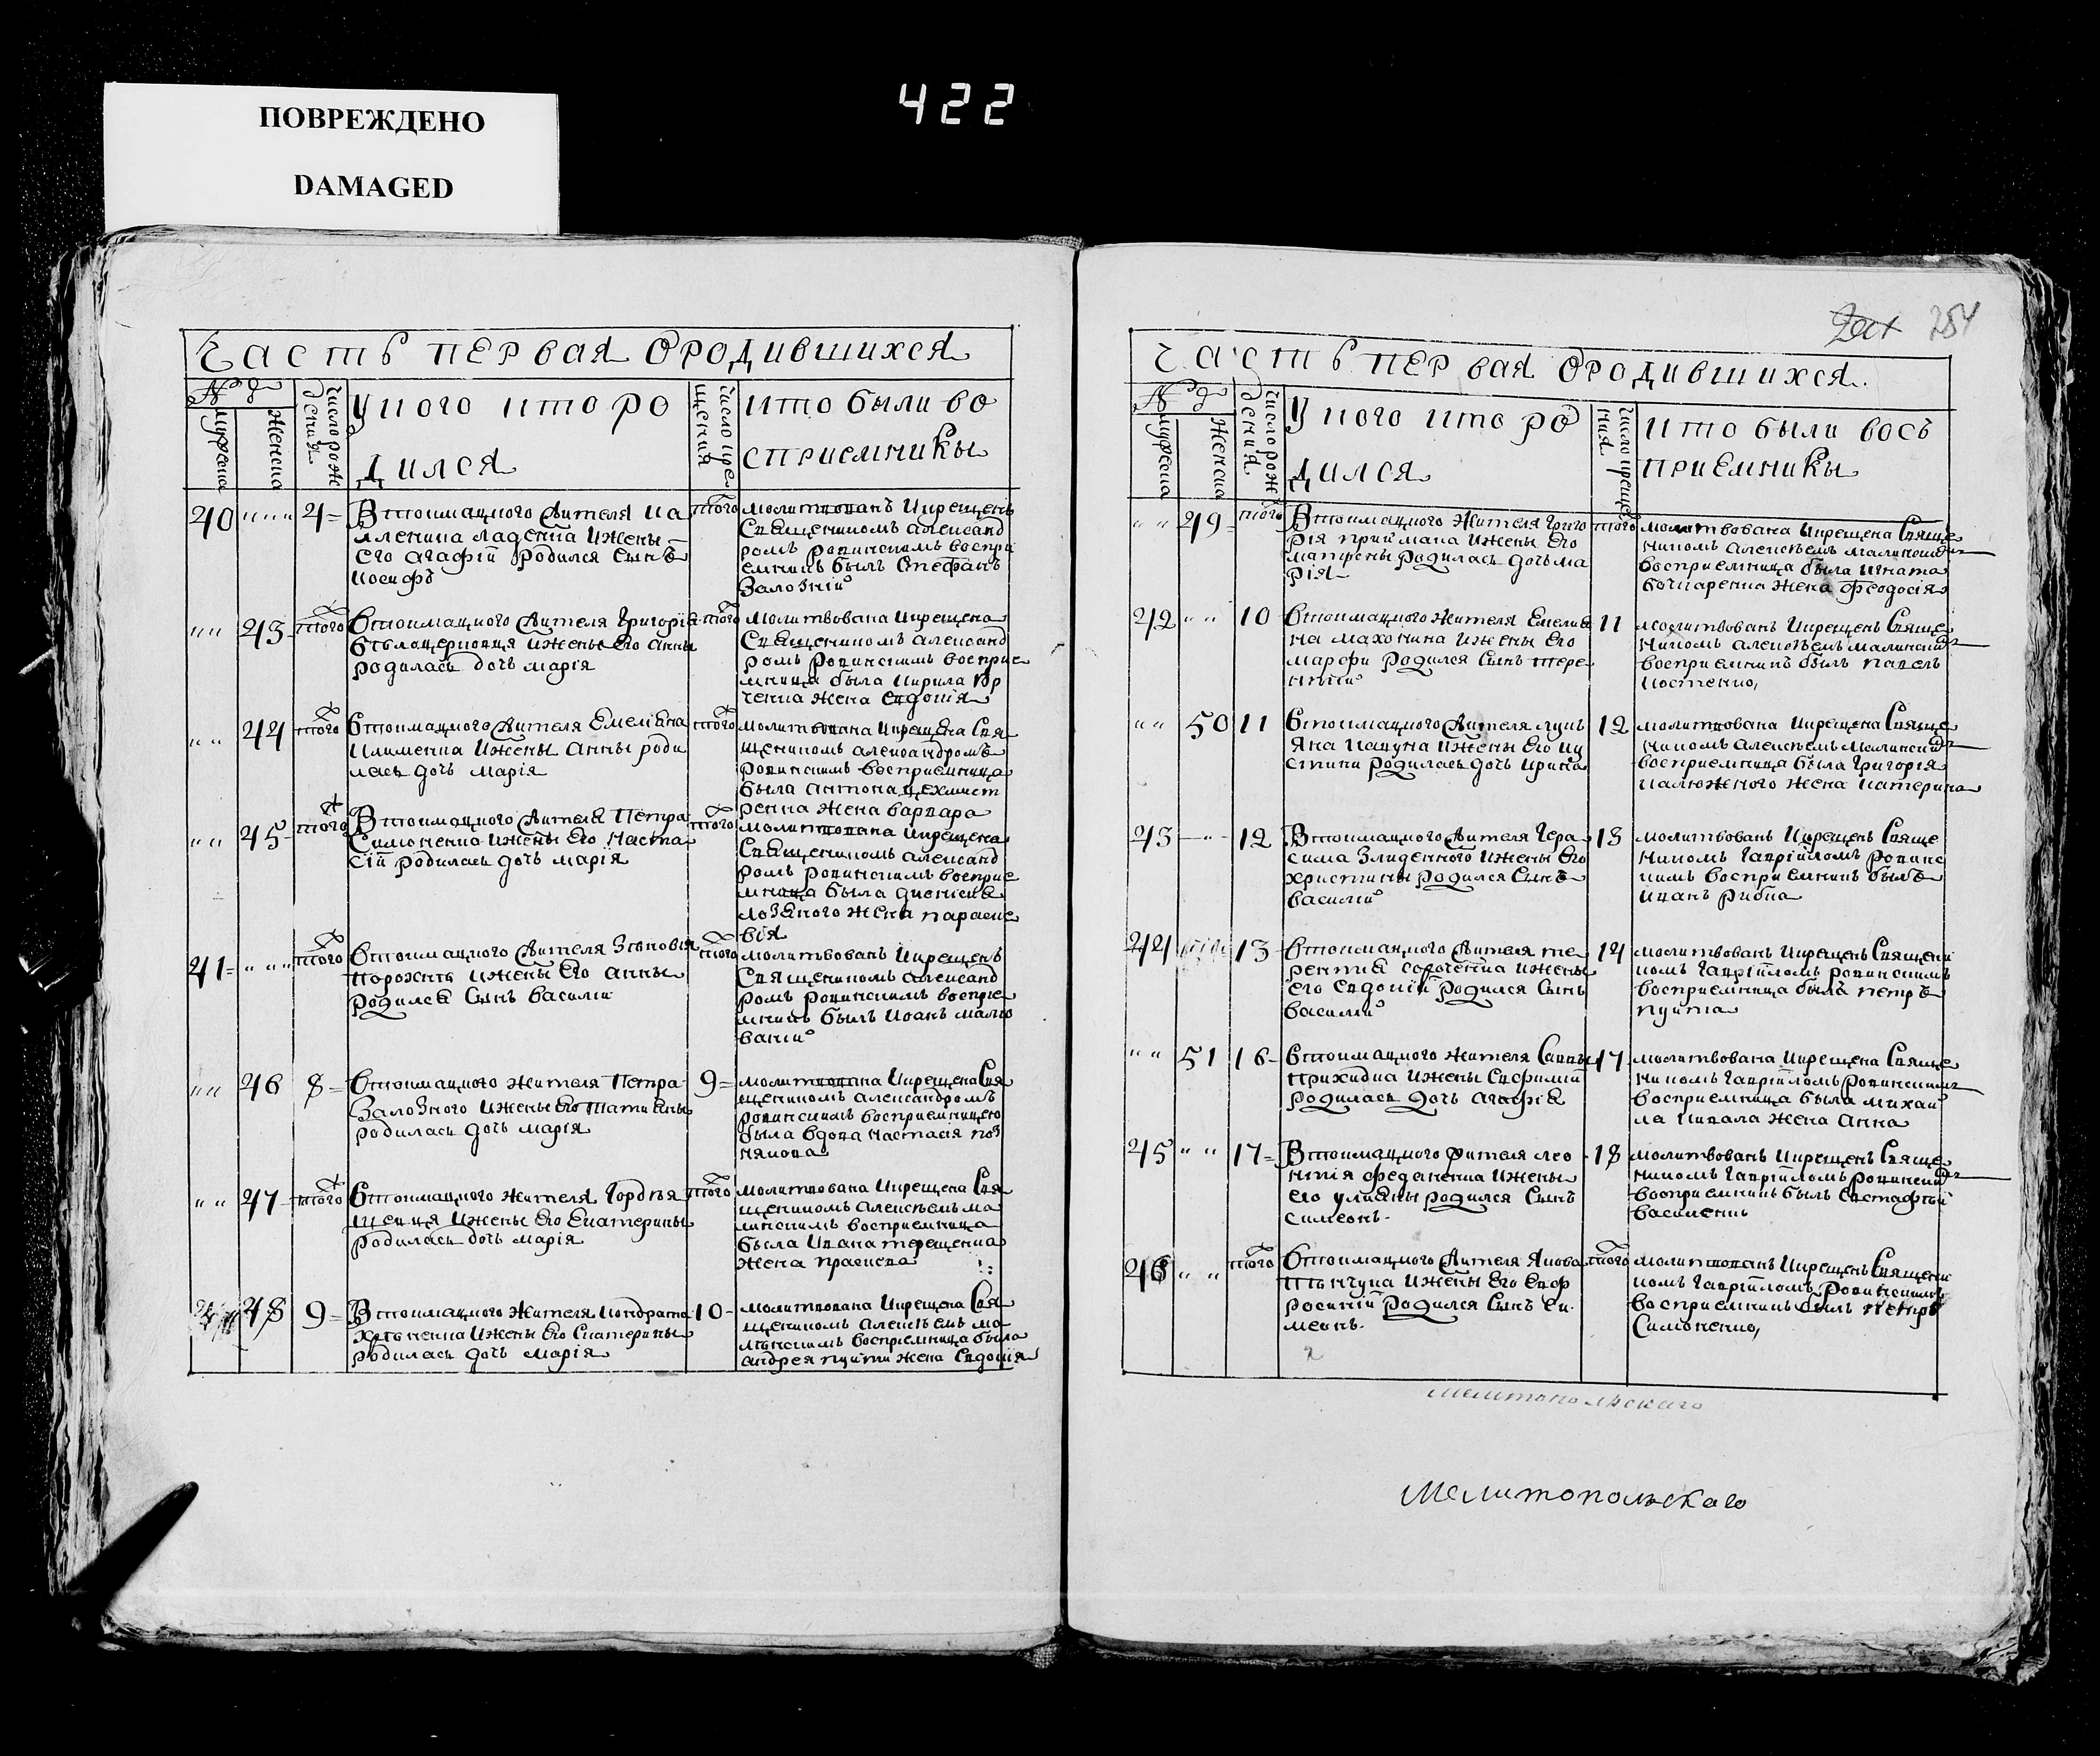 ПОВРЕЖДЕНО
DAMAGED
422
254
Часть первая ородившихся
№ д
мужеска
женска
число рож
дения
у кого кто ро
дился
число кре
щения
кто были во
сприемники
40 " " " 4 =
Втокмацкого жителя Ка
леника Ладенка ижены
его агафїи родился сынъ
иосифъ
того
молитвованъ икрещенъ
Священикомъ александ
ромъ ровинскимъ воспри
емникъ былъ Стефанъ
Залозній
" " 43 того
втокмацкого жителя Григорія
бѣлоцерковця ижены его анны
родилась дочь марія
того
молитвована икрещена
Священикомъ александ
ромъ ровинскимъ восприе
мница была кирила
женa евдокія
" " 44 того
втокмацкого жителя Емельяна
Клименка ижены анны роди
лась дочь марія
того
молитвована икрещена Свя
щеникомъ александромъ
ровинскимъ восприемница
была антона цехмист
ренка жена варвара
" " 45 того
Втокмацкого жителя Петра
Симоненка ижены его Наста
сїи родилась дочь марія
того
молитвована икрещена
Священикомъ александ
ромъ ровинскимъ восприе
мница была дионисія
лозяного жена параске
вія
41 = " " " того
втокмацкого жителя Зѣновія
порохнѣ ижены его анны
родился сынъ василій
того
молитвованъ икрещенъ
Священикомъ александ
ромъ ровинскимъ восприе
мникъ былъ иоанъ малю
ваній
" " 46 8 =
втокмацкого жителя Петра
Залозного ижены его татияны
родилась дочь марія
9 =
молитвована икрещена Свя
щеникомъ александромъ
ровинскимъ восприемницею
была вдова настасія поз
някова
" " 47 того
втокмацкого жителя Гордѣя
шевця ижены его Екатерины
родилась дочь марія
того
молитвована икрещена Свя
щеникомъ алексѣемъ ма
линскимъ восприемница
была ивана терещенка
жена праскева
48 9 =
Втокмацкого жителя кондрата
ижены его Екатерины
родилась дочь марія
10 -
молитвована икрещена Свя
щеникомъ алексѣемъ ма
линскимъ восприемница была
андрея пуйти жена Евдокія
Часть первая ородившихся
№ д
мужеска
женска
число рож
дения
у кого кто ро
дился
число креще
ния
кто были вось
приемники
" " 49 = того
Втокмацкого жителя Григо
рія приймака ижены его
матрены родилась дочь ма
рія
того
молитвована икрещена Свяще
никомъ алексѣемъ малинским
восприемница была игната
бочкаренка жена феодосія
42 " " 10
втокмацкого жителя Емелия
на махонина ижены его
марфы родился сынъ тере
нтій
11
молитвованъ икрещенъ Свяще
никомъ алексѣемъ малинским
восприемникъ былъ павелъ
костенко,
" " 50 11
втокмацкого жителя лукь
яна кацуна ижены его иу
стины родилась дочь ирина
12
молитвована икрещена Свяще
никомъ алексѣемъ малинским
восприемница была Григорія
калюжного жена катерина
43 - " - 12
Втокмацкого жителя Гера
сима Злиденного ижены его
христины родился сынъ
василій
13
молитвованъ икрещенъ Свяще
никомъ гаврійломъ ровинс
кимъ восприемникъ былъ
иванъ рибка
44 13
втокмацкого жителя те
рентія сороченка ижены
его евдокіи родился сынъ
василій
14
молитвованъ икрещенъ Священи
комъ гаврійломъ ровинскимъ
восприемница былъ петръ
пуйта
" " 51 16 -
втокмацкого жителя Саввы
прихидка ижены Евфимїи
родилась дочь агафія
17
молитвована икрещена Свяще
никомъ гаврійломъ ровинским
восприемница была михай
ла кивала жена анна
45 " " 17 =
Втокмацкого жителя лео
нтія феданенка ижены
его ульяны родился сынъ
симеонъ -
18
молитвованъ икрещенъ Свяще
никомъ гаврійломъ ровинским
восприемникъ былъ Евстафїй
василенкъ
46 " " того
втокмацкого жителя якова
ижены его Евф
росиніи родился сынъ си
меонъ -
того
молитвованъ икрещенъ Священи
комъ гаврійломъ ровинскимъ
восприемникъ былъ петръ
симоненко,
2
мелитопольскаго
Мелитопольскаго